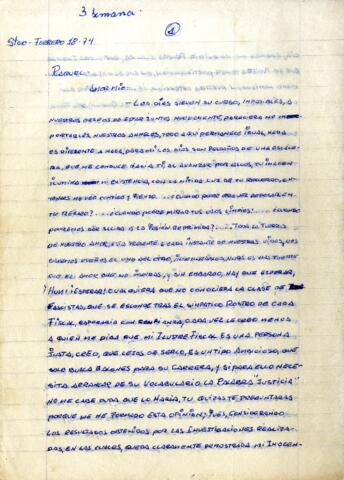 3 Semana.
1
Stgo - Febrero 18-74
Raquel
Amor mio:
- Los días siguen su curso, imposibles, a
nuestros deseos de estar juntos nuevamente, pareciera no im-
portarles nuestros anhelos, todo aquí permanece igual, nada
es diferente a nada, para mi los días son peldaños de una escale-
ra, que me conduce hacia ti, al avanzar por ellos tu imagen
ilumina mi existencia, con la nitida luz de tu recuerdo, en-
tonces me veo contigo y pienso... ¿Cuándo podré otra vez
tu
¿Cuándo podré mirar tus ojos limpios? ... ¿Cuándo
podremos dar salida a la pasión reprimida? ... Toda la fuerza
de nuestro amor, está presente a cada instante de nuestras vidas, nos
el uno del otro,
que el amor que nos, y sin embargo, hay que esperar,
Hum! Esperar! Cualquiera que no conociera la clase de
Fascistas, que se esconde tras el simpatico rostro de cada
Fiscal, esperaria con confianza, o para vez le cabe
a quien me diga que mi Ilustre Fiscal es una persona
justa, creo, que lejos de serlo, es un tipo ambicioso, que
solo busca para su carrera, y si para ello nece-
sita arrancar de su vocabulario la palabra "Justicia"
no me cabe duda que lo haria, tu quizas te preguntaras
porque me he formado esta opinion; pues, considerando
los resultados obtenidos por las investigaciones realiza-
das, en las cuales, queda claramente demostrada mi inocen-